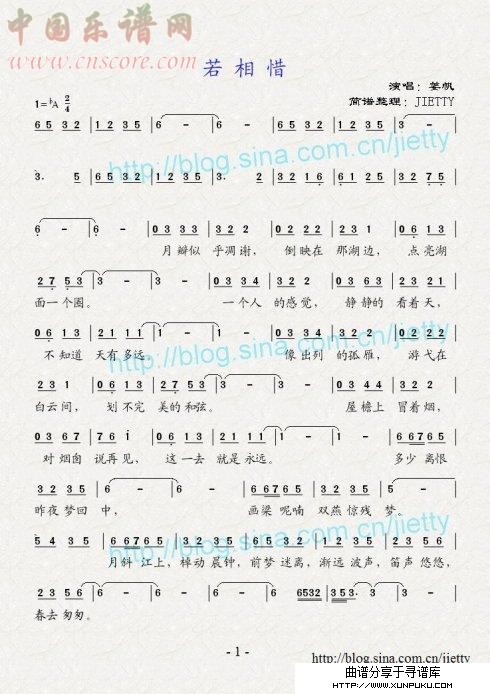 中国乐谱网
www.cnscore.com
若相惜
演唱：姜帆
简谱整理：JIETTY
1=♭A 2/4
6 5 3 2 | 1 2 3 5 | 6 - | 6 - | 6 5 3 2 | 1 2 3 5 | 6 - | 6 - |
http://blog.sina.com.cn/jietty
3. 5 | 6 5 3 2 | 1 2 3 5 | 3. 2 | 6 1 2 5 | 2 1 3 5 | 3 2 7 5 |
6 - | 6 - | 0 3 3 5 | 3 2 2 2 | 0 3 3 5 | 2 3 1 | 0 6 1 3 |
月瓣似 乎凋谢， 倒映在 那湖边， 点亮湖
2 7 5 3 | 3 - | 3 - | 0 3 3 4 | 3 2 2 | 0 3 3 5 | 2 3 2 1 |
面一个圈。 一个人 的感觉， 静静的 看着天，
0 6 1 3 | 2 1 1 1 | 1 - | 1 - | 0 3 3 4 | 3 2 2 2 | 0 3 3 5 |
不知道 天有多远。 像出列 的孤雁， 游弋在
http://blog.sina.com.cn/jietty
2 3 1 | 0 6 1 3 | 2 7 5 3 | 3 - | 3 - | 0 3 3 4 | 3 2 2 |
白云间， 划不完 美的和弦。 屋檐上 冒着烟，
0 3 3 5 | 7 6 1 | 0 6 1 3 | 2 1 1 1 | 1 - | 1 - | 6 6 7 6 5 |
对烟囱 说再见， 这一去 就是永远。 多少离恨
3 2 3 5 | 6 - | 6 - | 6 - | 6 6 7 6 5 | 3 2 3 5 | 2 - |
昨夜梦回 中， 画梁呢喃 双燕惊残 梦。
http://blog.sina.com.cn/jietty
5 4 3 | 6 6 7 6 5 | 3 2 3 5 | 1 2 3 5 | 1 2 3 5 | 3 2 3 5 |
月斜 江上，棹动 晨钟，前梦 迷离，渐远 波声，笛声 悠悠，
6 2 3 5 | 6 - | 6 - | 6 - | 6 - | 6532 | 3 5 3 | 3 - | 3 - |
春去 匆匆。
- 1 -
http://blog.sina.com.cn/jietty
曲谱分享于寻谱库
HTTP://WWW.XUNPUKU.COM